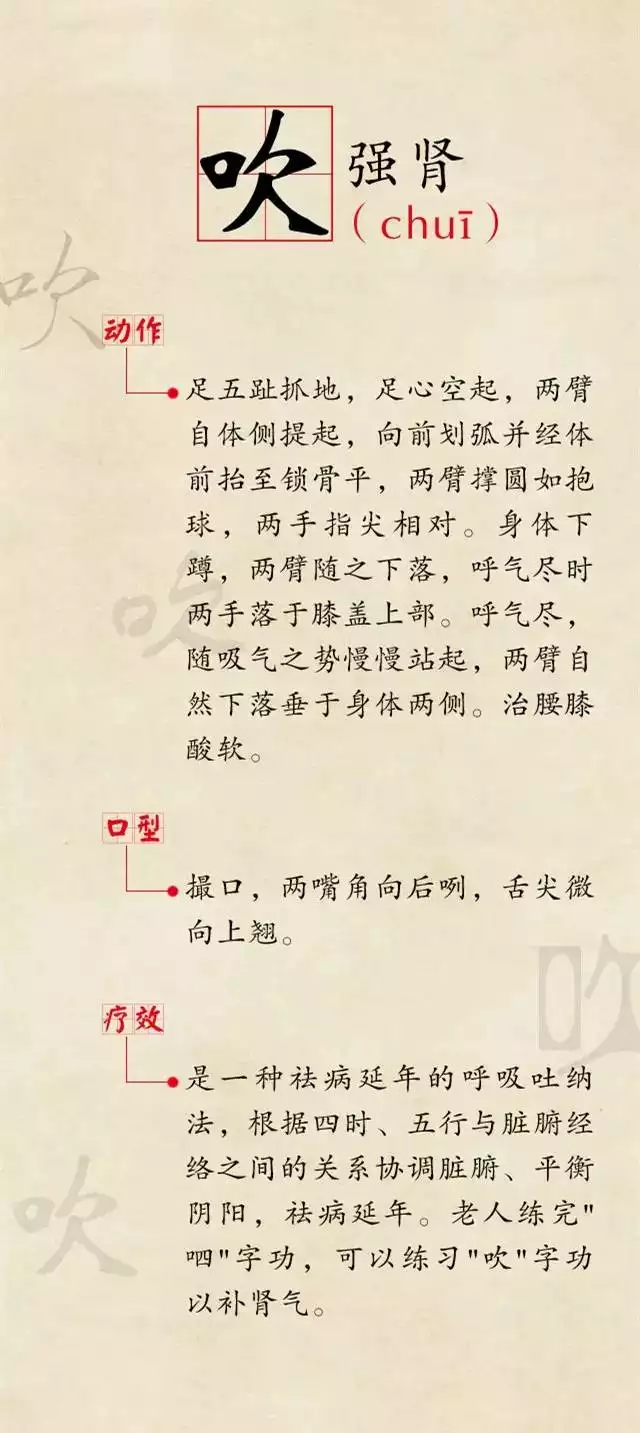 吹
强肾
（chuī）
吹
动作
足五趾抓地，足心空起，两臂
自体侧提起，向前划弧并经体
前抬至锁骨平，两臂撑圆如抱
球，两手指尖相对。身体下
蹲，两臂随之下落，呼气尽时
两手落于膝盖上部。呼气尽，
随吸气之势慢慢站起，两臂自
然下落垂于身体两侧。治腰膝
酸软。
吹
口型
撮口，两嘴角向后咧，舌尖微
向上翘。
吹
疗效
是一种祛病延年的呼吸吐纳
法，根据四时、五行与脏腑经
络之间的关系协调脏腑、平衡
阴阳，祛病延年。老人练完"
呬"字功，可以练习"吹"字功
以补肾气。
吹